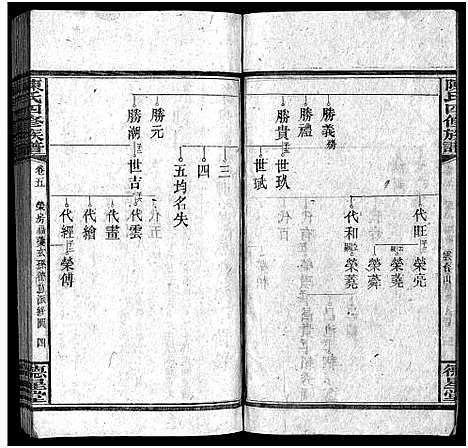 陳氏四修族譜
代旺
榮亮
榮蕘
榮蕣
代和
榮蕘
勝義
勝禮
勝貴
世玖
世斌
三
四
五均名失
勝元
勝潮
世吉
代雲
代畫
代繪
代經
榮傳
德星堂
陳氏四修族譜
卷五
四
德星堂